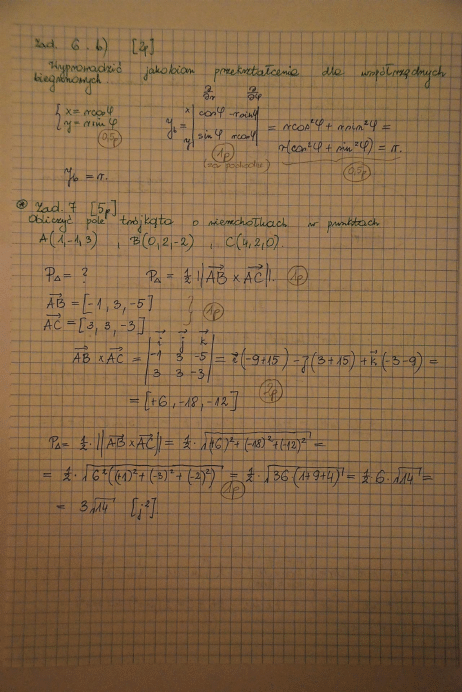 Zad. 6. b) [2p]
Wyprowadzić jakobian przekształcenia dla współrzędnych
biegunowych.
∂/∂r ∂/∂φ
{ x = r cosφ
{ y = r sinφ
(0,5p)
J_b = x| cosφ -r sinφ |
y| sinφ r cosφ | = r cos²φ + r sin²φ =
r(cos²φ + sin²φ) = r.
(1p) (0,5p)
J_b = r.
Zad. 7 [5p]
Obliczyć pole trójkąta o wierzchołkach w punktach
A(1,-1,3) , B(0,2,-2) , C(4,2,0).
P△ = ? P△ = ½ ||AB × AC||. (1p)
AB = [-1, 3, -5]
AC = [3, 3, -3] } (1p)
AB × AC = | i j k |
| -1 3 -5 |
| 3 3 -3 | = i(-9+15) - j(3+15) + k(-3-9) =
= [+6, -18, -12] (2p)
P△ = ½ · ||AB × AC|| = ½ · √((+6)² + (-18)² + (-12)²) =
= ½ · √(6²((+1)² + (-3)² + (-2)²)) = ½ · √(36(1+9+4)) = ½ 6 · √14 =
(1p)
= 3√14 [j²].